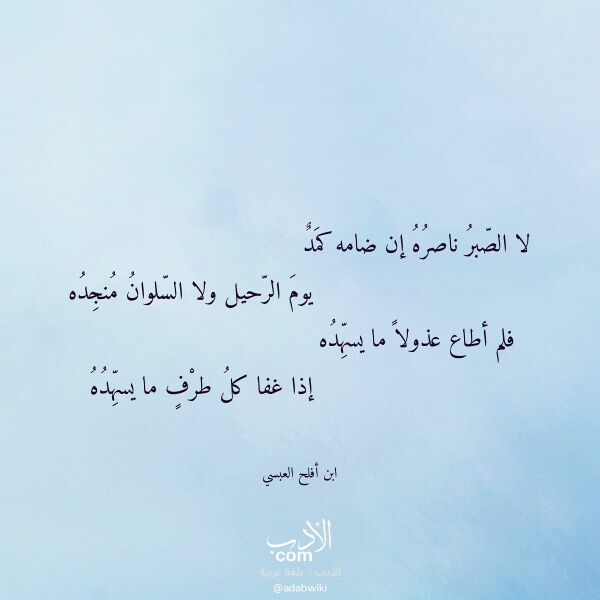 لا الصّبرُ ناصرُهُ إن ضامه كَمَدٌ
يومَ الرّحيل ولا السّلوانُ مُنجِدُه
فلم أطاع عذولاً ما يسهِّدُه
إذا غفا كلُ طرْفٍ ما يسهِّدُهُ
ابن أفلح العبسي
الأدب
com
الأدب .. بلغة عربية
@adabwiki